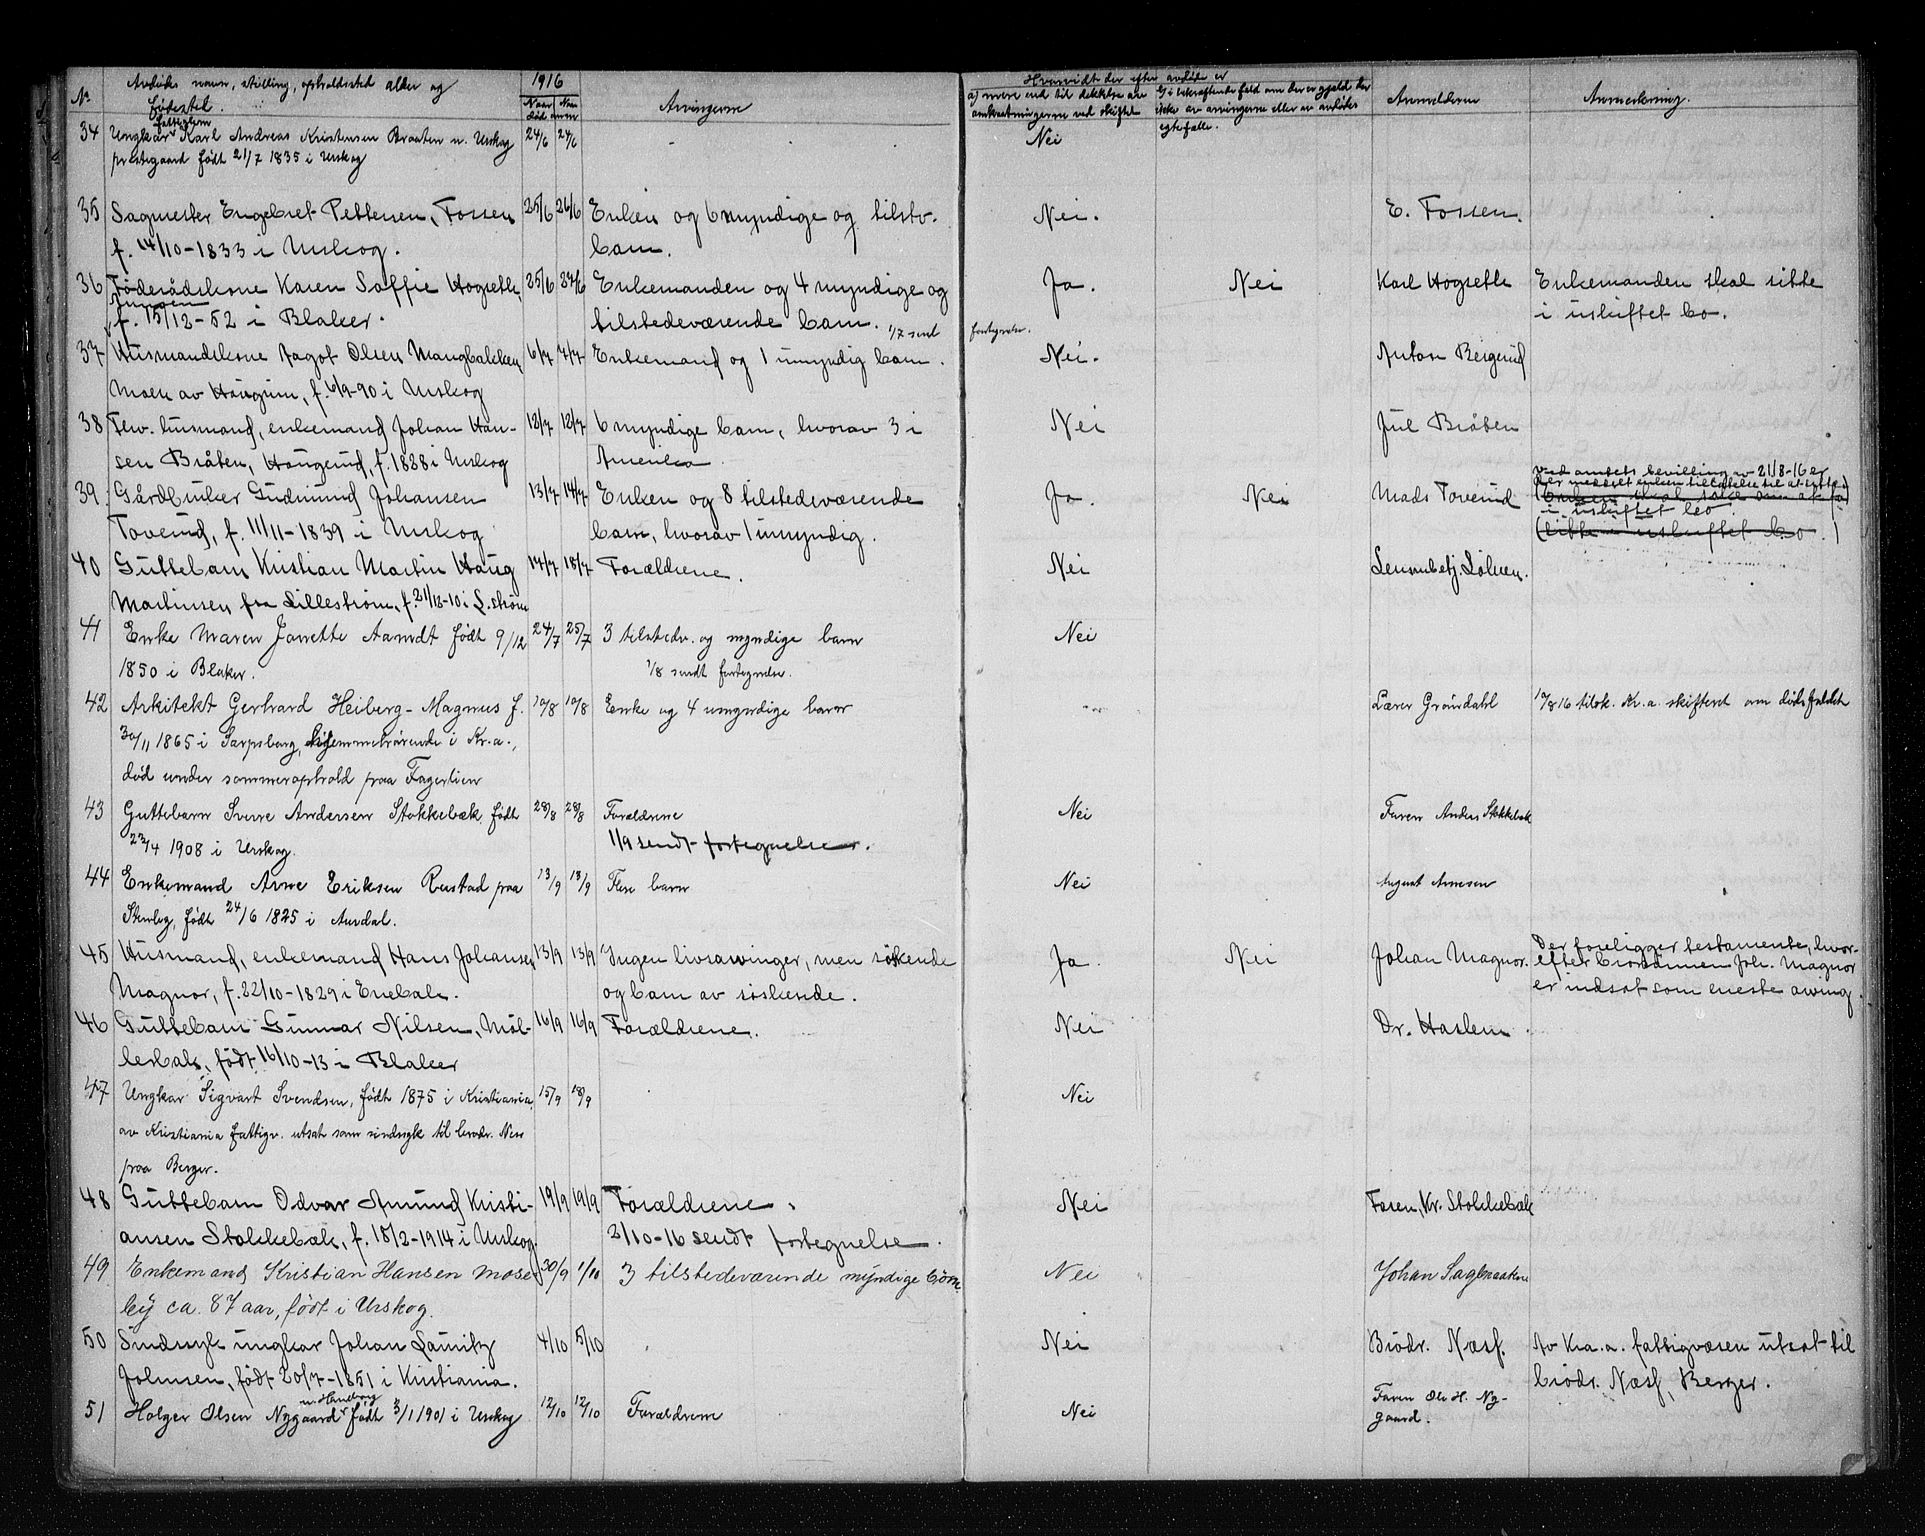 No Avdødes navn, stilling, opholdssted alder og fødested. 1916 Naar død Naar anm Arvingerne
Hvorvidt der efter avdøde er
a) mere end til dekkelse av omkostningerne ved skiftet b) i bekræftende fald om der er gjæld der ikke av arvingerne eller av avdødes egtefælle.
Anmelderen Anmerkning.
34 Ungkar fattiglem Karl Andreas Kristensen Braaten u. Urskog 24/6 24/6 Nei
prestegaard født 21/7 1835 i Urskog
35 Sagmester Engebret Pettersen, Fossen 25/6 26/6 Enken og 6 myndige og tilstv. Nei. E. Fossen.
f. 14/10-1833 i Urskog. barn.
36 Føderådskone Karen Soffie Hogseth, 25/6 27/6 Enkemanden og 4 myndige og Ja. Nei Karl Hogseth Enkemanden skal sitte
f. 15/12-52 i Blaker. tilstedeværende barn. 1/7 sendt fortegnelse. i uskiftet bo.
37 Husmandskone Jagot Olsen Mangbakken 6/7 7/7 Enkemand og 1 umyndig barn. Nei. Anton Bergerud
Moen av Haugrim, f. 6/9-90 i Urskog
38 Few. husmand, enkemand Johan Han- 12/7 12/7 6 myndige barn, hvorav 3 i Nei Jul Bråten
sen Bråten, Haugerud, f. 1828 i Urskog Amerika
39. Gårdbruker Gudmund Johansen 13/7 14/7 Enken og 8 tilstedeværende Ja. Nei Mads Toverud ved amtets bevilling av 21/8-16 er
der meddelt enken tilladelse til at sitte
(Enken skal søke om at få)
i uskiftet bo
Toverud, f. 11/11-1839 i Urskog barn, hvorav 1 umyndig. (sitte i uskiftet bo.)
40 Guttebarn Kristian Martin Haug 14/7 18/7 Forældrene. Nei Lensmbetj. Løken.
Martinsen fra Lillestrøm, f. 21/12-10 i L.strøm
41 Enke Maren Janette Aamdt født 9/12 24/7 25/7 3 tilstedv. og myndige barn Nei
1850 i Blaker. 1/8 sendt fortegnelse.
42 Arkitekt Gerhard Heiberg-Magnus f. 10/8 10/8 Enke og 4 umyndige barn -"- Lærer Grøndahl 10/8 16 tilsk. Kr.a. skifteret om dødsfaldet
30/11 1865 i Sarpsborg, hjemmehørende i Kr.a.,
død under sommerophold paa Fagerlien
43 Guttebarn Sverre Andersen Stokkebæk født 28/8 28/8 Forældrene Nei Faren Anders Stokkebæk
23/4 1908 i Urskog. 1/9 sendt fortegnelse.
44 Enkemand Arne Eriksen Rustad paa 13/9 13/9 Flere barn Nei August Arnesen
Skuleg, født 24/6 1825 i Aurdal.
45 Husmand, enkemand Hans Johansen 13/9 13/9 Ingen livsarvinger, men søskende Ja. Nei Johan Magnor. Der foreligger testamente, hvor-
efter brorsønnen Joh. Magnor
Magnor, f. 22/10-1829 i Enebak. og barn av søskende. er indsat som eneste arving.
46 Guttebarn Gunnar Nilsen, Møl- 16/9 16/9 Forældrene. Nei Dr. Haslem.
lerbak, født 16/10-13 i Blaker
47 Ungkar Sigvart Svendsen, født 1875 i Kristiania, 15/9 18/9 Nei
av Kristiania fattigv. utsat som sindsyk til brødr. Ness
paa Berger.
48 Guttebarn Odvar Amund Kristi- 19/9 19/9 Forældrene. Nei Faren, Kr. Stokkebæk
ansen Stokkebæk, f. 18/2-1914 i Urskog. 2/10-16 sendt fortegnelse.
49 Enkemand Kristian Hansen Mose- 30/9 1/10 3 tilstedeværende myndige børn. Nei Johan Sagbraaten
by ca. 87 aar, født i Urskog.
50 Sindsyk ungkar Johan Lauritz 4/10 5/10 Nei Brødr. Næsf. Av Kra.a. fattigvæsen utsat til
Johnsen, født 20/7-1851 i Kristiania. brødr. Næsf, Berger.
51 Holger Olsen Nygaard u. Haneborg født 3/1 1901 i Urskog 12/10 12/10 Forældrene Nei Faren Ole H. Ny-
gaard.